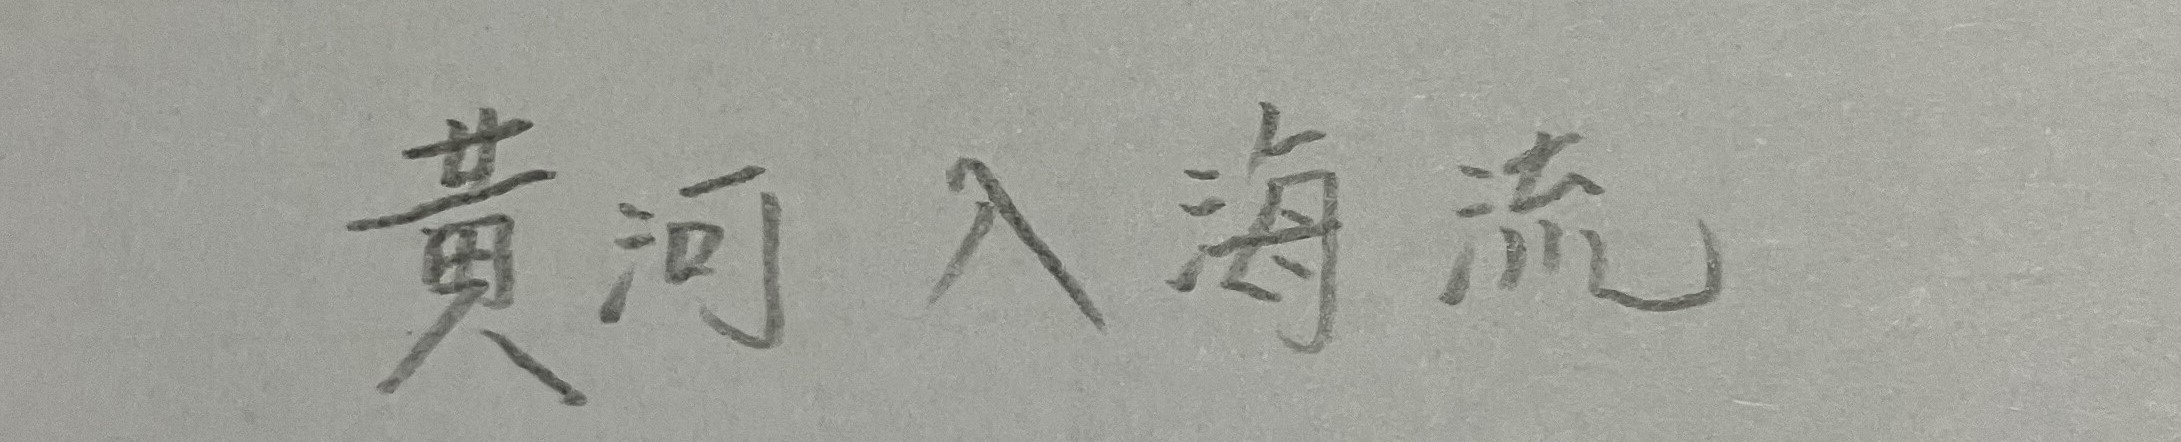 黃河入海流